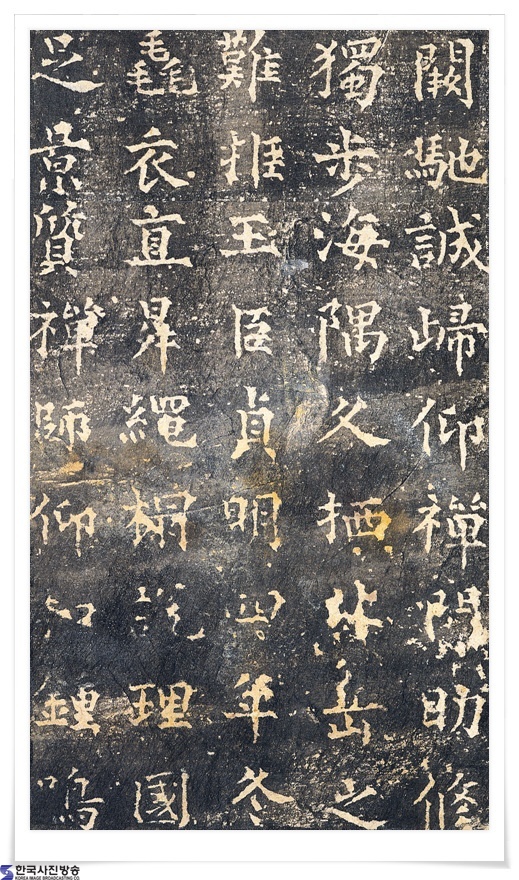 闕馳誠歸仰禪門助修
獨步海隅久栖岳之
難推玉臣貞明四年冬
毳衣直昇繩榻說理國
景質禪師仰知鍾鳴
한국사진방송
KOREA IMAGE BROADCASTING CO.